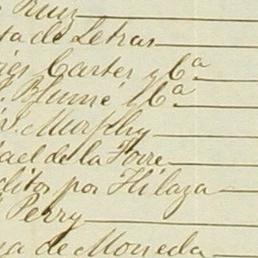 Ruiz
ta de Letras
Carter y Cª
F. Blumé y Cª
S. Murphy
ael de la Torre
ditos por Hilaza
Perry
sa de Moneda